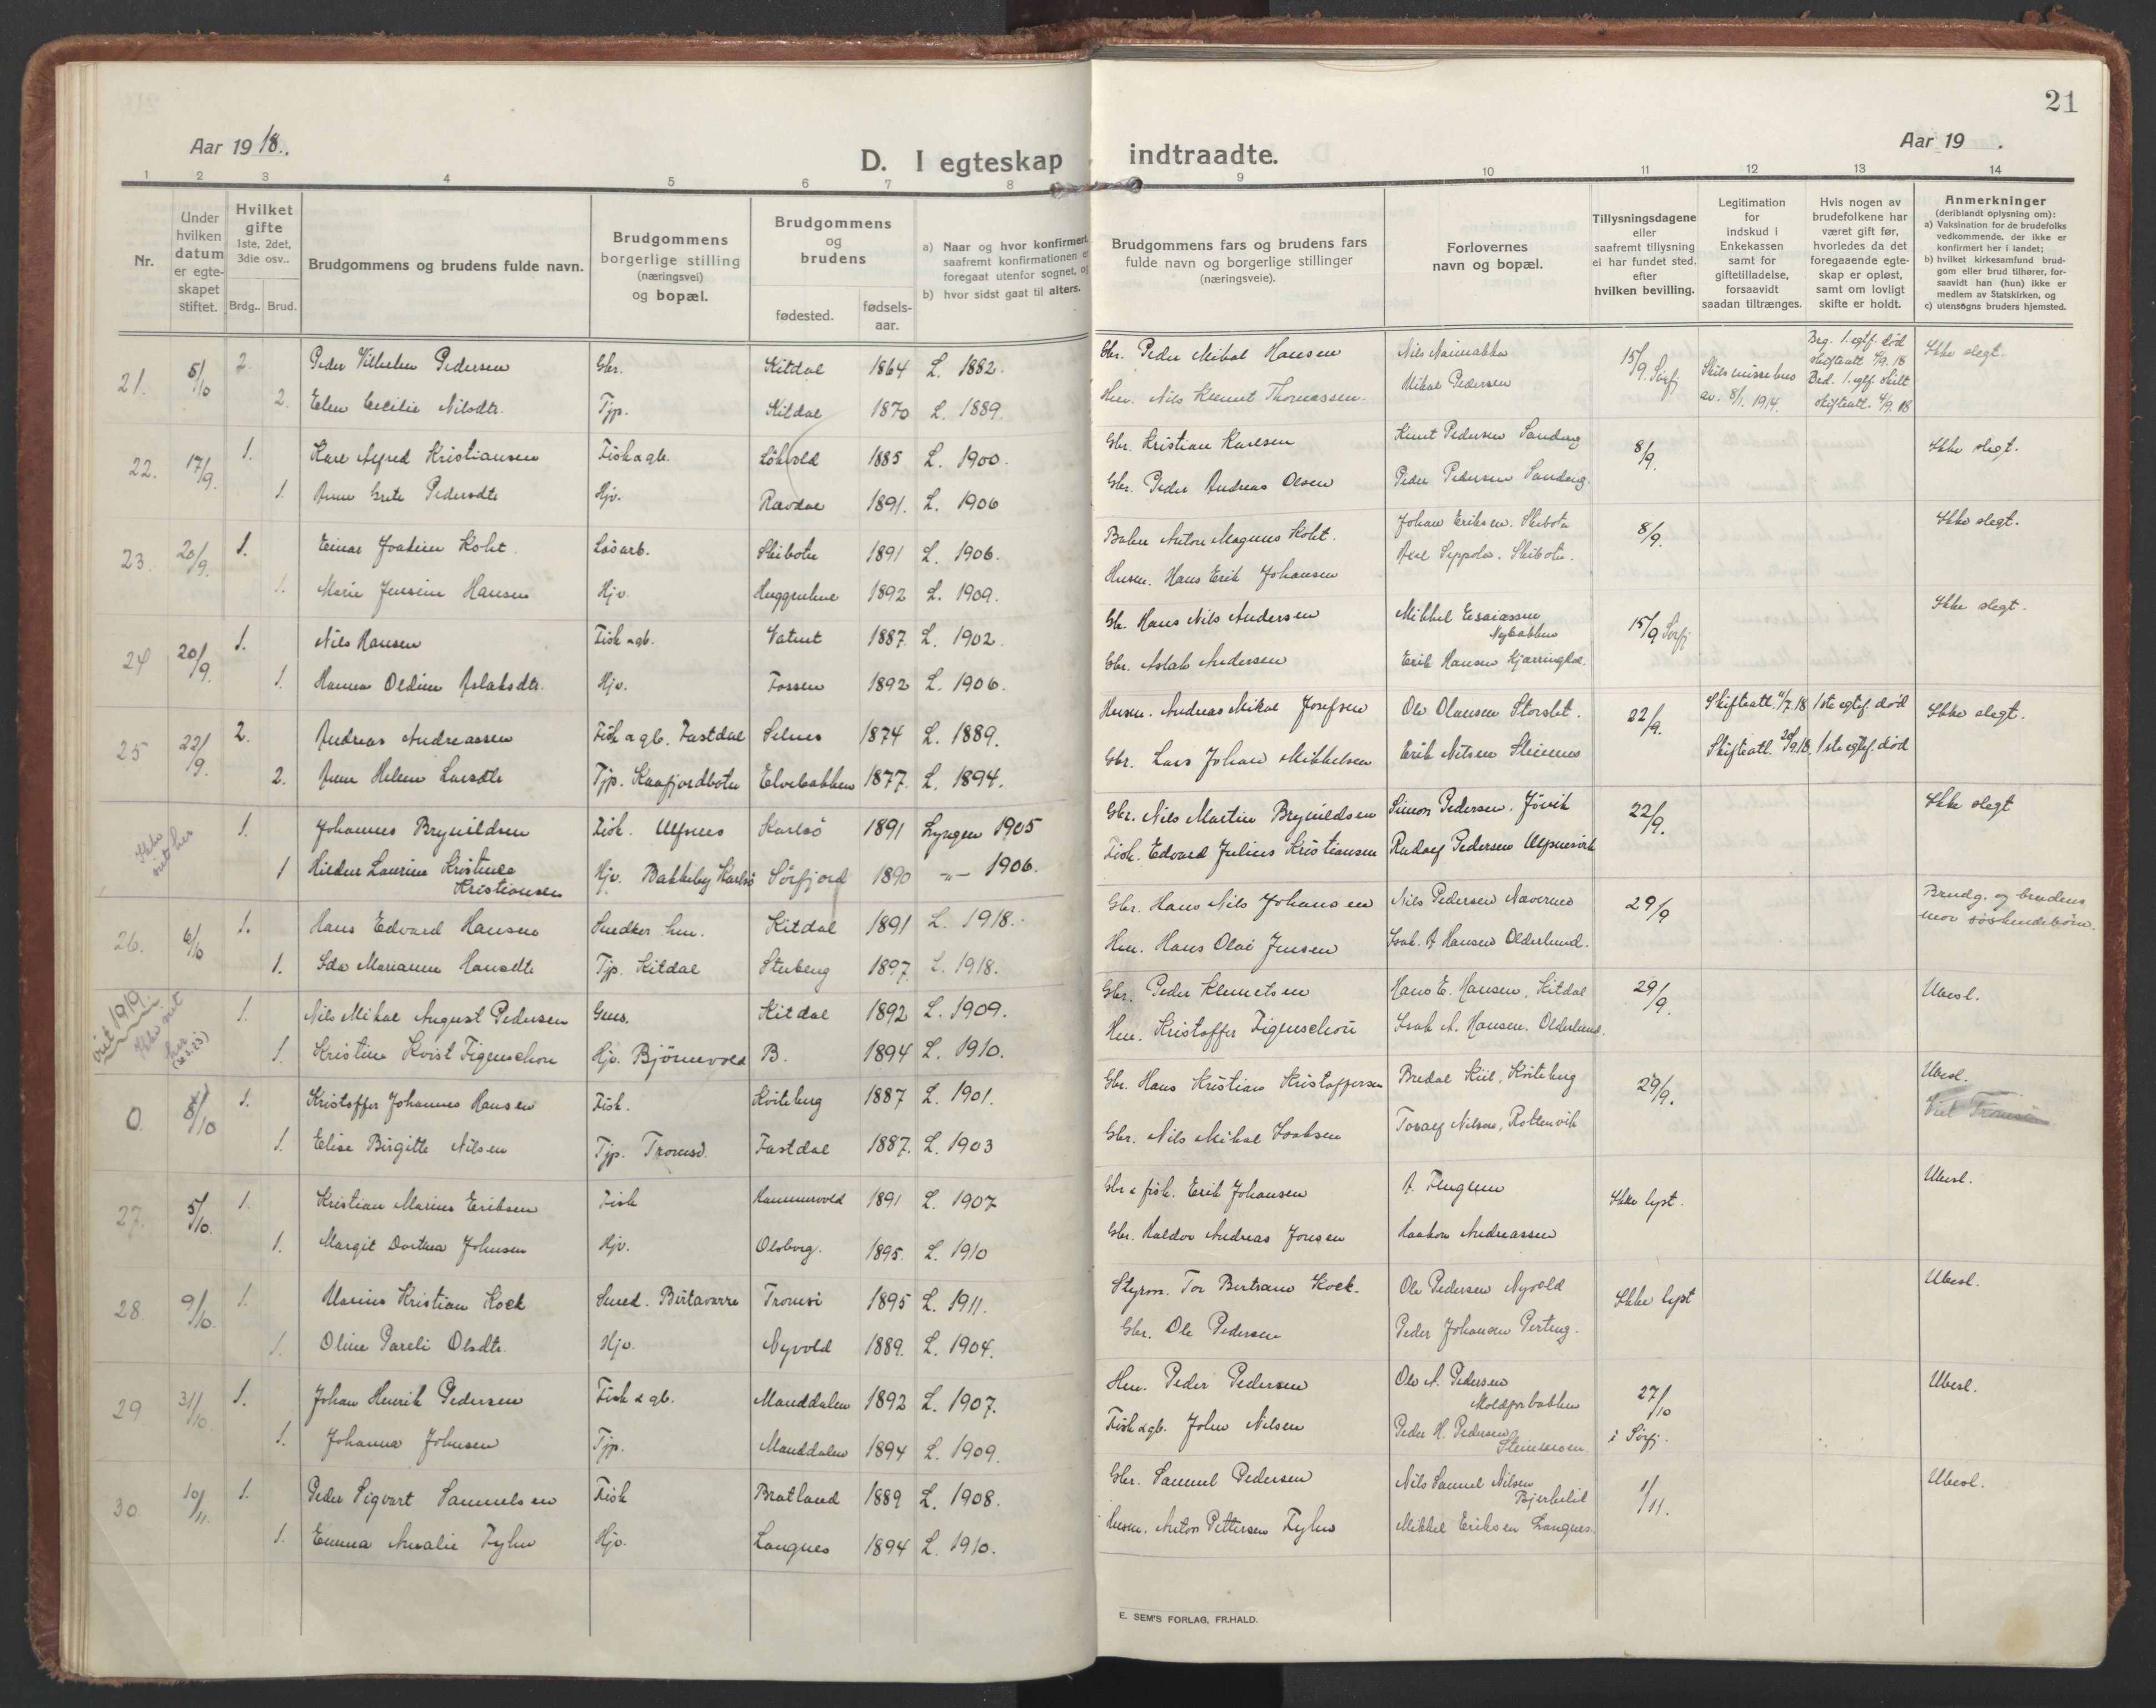 21
Aar 1918.
Aar 19 .
D. I egteskap indtraadte.
1 2 3 4 5 6 7 8 9 10 11 12 13 14
Nr.
Under hvilken datum er egteskapet stiftet.
Hvilket gifte 1ste, 2det, 3die osv..
Brdg.. Brud.
Brudgommens og brudens fulde navn.
Brudgommens borgerlige stilling (næringsvei) og bopæl.
Brudgommens og brudens
fødested.
fødsels-aar.
a) Naar og hvor konfirmert, saafremt konfirmationen er foregaat utenfor sognet, og
b) hvor sidst gaat til alters.
Brudgommens fars og brudens fars fulde navn og borgerlige stillinger (næringsveie).
Forlovernes navn og bopæl.
Tillysningsdagene eller saafremt tillysning ei har fundet sted. efter hvilken bevilling.
Legitimation for indskud i Enkekassen samt for giftetilladelse, forsaavidt saadan tiltrænges.
Hvis nogen av brudefolkene har været gift før, hvorledes da det foregaaende egteskap er opløst, samt om lovligt skifte er holdt.
Anmerkninger (deriblandt oplysning om):
a) Vaksination for de brudefolks vedkommende, der ikke er konfirmert her i landet;
b) hvilket kirkesamfund brudgom eller brud tilhører, forsaavidt han (hun) ikke er medlem av Statskirken, og
c) utensogns bruders hjemsted.
21. 5/10 2. Peder Vilhelm Pedersen Gbr. Kitdal 1864 L. 1882. Gbr. Peder Mikal Hansen Nils 15/9 Sørfj Skilsmissebev av. 8/1. 1914. Brg. 1. egtf. død skifteatt 4/9. 18 Ikke slegt.
2. Elen Cecilie Nilsdtr. Tjp. Kitdal 1870 L. 1889. Hm. Nils Klemet Thomassen. Mikal Pedersen Brd. 1. egtf. skilt skifteatt. 4/9. 18
22. 17/9. 1. Karl Alfred Kristiansen Fisk & gb. Løkvold 1885 L. 1900. Gbr. Kristian Karlsen Knut Pedersen Sandeng 8/9. Ikke slegt.
1. Anne Grete Pedersdtr Hjv. Ravdal 1891. L. 1906 Gbr. Peder Andreas Olsen Peder Pedersen Sandeng.
23. 20/9. 1. Einar Joakim Koht. Løsarb. Skibotn 1891 L. 1906. Anton Magnus Koht. Johan Eriksen. Skibotn 8/9. Ikke slegt.
1. Marie Jensine Hansen Hjv. 1892 L. 1909. Husm. Hans Erik Johansen Seppola. Skibotn.
24 20/9. 1. Nils Hansen Fisk & gb. 1887. L. 1902. Gb. Hans Nils Andersen Mikkel Esaiassen Nybakken 15/9 Sørfj Ikke slegt.
1. Hanna Oldine Aslaksdtr. Hjv. Fossen 1892 L. 1906. Gbr. Aslak Andersen Erik Hansen
25 22/9. 2. Andreas Andreassen Fisk & gb. Fastdal Selnes 1874 L. 1889. Husm. Andreas Mikal Josefsen Ole Olausen Storslet. 22/9. Skifteatt. 1/7. 18 1ste egtef. død Ikke slegt.
2. Anne Helene Larsdtr Tjp. Kaafjordbotn Elvebakken 1877. L. 1894. Gbr. Lars Johan Mikkelsen Erik Nilsen Steinnes Skifteatl. 20/9.18. 1ste egtef. død
Ikke viet her 1. Johannes Brynildsen Fisk. Ulfsnes Karlsø 1891 Lyngen 1905 Gbr. Nils Martin Brynildsen Simon Pedersen. Jøvik 22/9. Ikke slegt
1 Hilden Laurine Kristine Kristiansen Hjv. Bakkeby Karlsø Sørfjord 1890 -"- 1906. Fisk. Edvard Julius Kristiansen Rudolf Pedersen Ulfsnesvik
26. 6/10 1. Hans Edvard Hansen Snedker hm. Kitdal 1891 L. 1918. Gbr. Hans Nils Johansen Nils Pedersen Navernes 29/9 Brudg. og brudens mor søskendebørn.
1. Ida Marianne Hansdtr Tjp. Kitdal Stubeng 1897. L. 1918. Hm. Hans Olai Jensen Isak. A Hansen Olderlund.
viet 1919. Ikke viet her 1. Nils Mikal August Pedersen Kitdal 1892 L. 1909. Gbr. Peder Klemetsen Hans E. Hansen, Kitdal 29/9. Ubesl.
1. Kristine Kvist Figenschou Hjv. Bjørnevold B. 1894 L. 1910. Hm. Kristoffer Figenschou Isak A. Hansen. Olderlund.
0. /10 1. Kristoffer Johannes Hansen Fisk. Kviteberg 1887 L. 1901. Gbr. Hans Kristian Kristoffersen Bredal Kiil, Kviteberg 29/9. Ubesl.
1. Elise Birgitte Nilsen Tjp. Tromsø. Fastdal 1887. L. 1903 Gbr. Nils Mikal Isaksen Toralf Nilsen, Rottenvik Viet Tromsø
27. 5/10. 1. Kristian Marius Eriksen Fisk Hammervold 1891 L. 1907 Gbr & fisk. Erik Johansen Ikke lyst. Ubesl.
1. Margit Dortea Johnsen Hjv. Olsborg. 1895. L. 1910 Gbr. Haldor Andreas Jonsen Haakon Andreassen
28. 9/10. 1. Marius Kristian Koch Smed. Birtavarre Tromsø 1895 L. 1911. Styrm. Tor Bertram Koch. Ole Pedersen Nyvold Ikke lyst Ubesl.
1. Oline Pareli Olsdtr. Hjv. Nyvold 1889. L. 1904. Gbr. Ole Pedersen Peder Johansen
29 31/10 1. Johan Henrik Pedersen Fisk & gb. Manddalen 1892 L. 1907. Hm. Peder Pedersen Ole A. Pedersen 27/10 Ubesl.
1. Johanna Johnsen Tjp. Manddalen 1894 L. 1909. Fisk & gb. John Nilsen Peder H. Pedersen Steinmoen. i Sørfj.
30. 10/11. 1. Peder Sigvart Samuelsen Fisk Bratland 1889 L. 1908. Gbr. Samuel Pedersen Nils Samuel Nilsen Bjerkelid 1/11. Ubesl.
1. Emma Amalie Fyhn Hjv. Langnes 1894 L. 1910. Husm. Anton Pettersen Fyhn Mikkel Eriksen Langnes.
E. SEM'S FORLAG, FR.HALD.